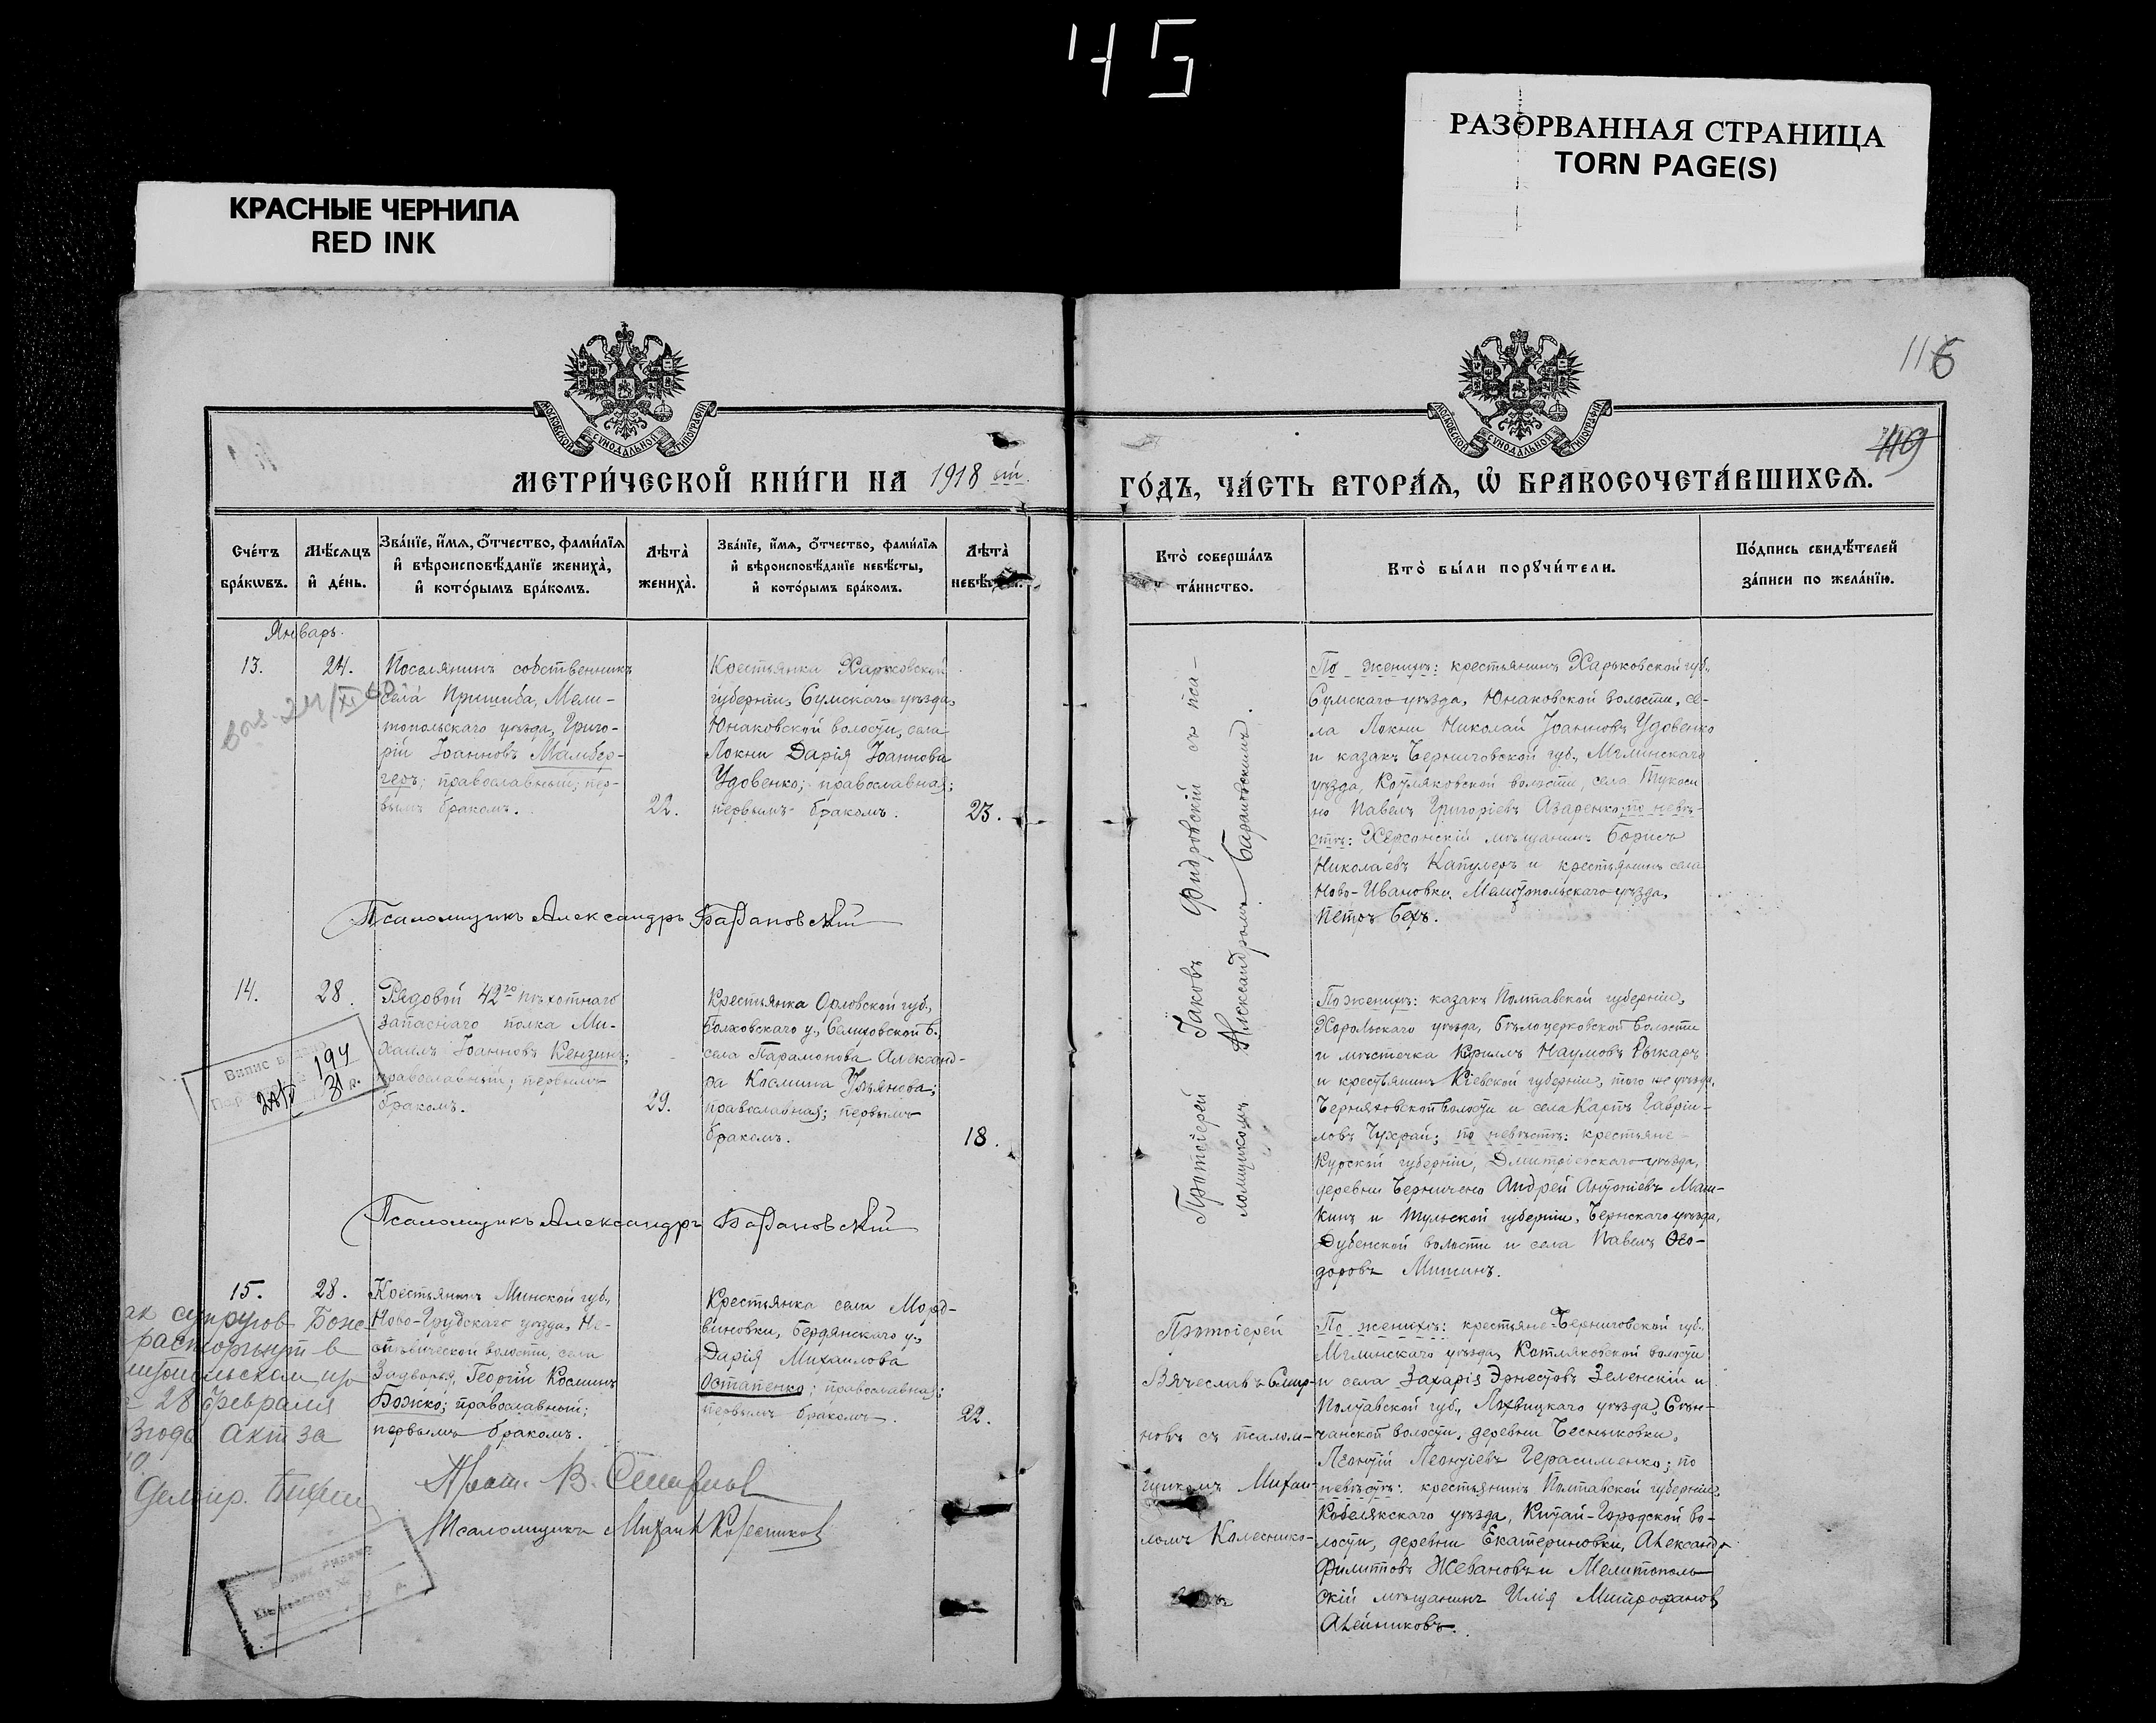 45
КРАСНЫЕ ЧЕРНИЛА
RED INK
РАЗОРВАННАЯ СТРАНИЦА
TORN PAGE(S)
116
119
МОСКОВСКОЙ СѴНОДАЛЬНОЙ ТИПОГРАФІИ
МОСКОВСКОЙ СѴНОДАЛЬНОЙ ТИПОГРАФІИ
МЕТРИ́ЧЕСКОЙ КНИ́ГИ НА 1918 ый
ГО́ДЪ, ЧА́СТЬ ВТОРА́Я, Ѡ БРАКОСОЧЕТА́ВШИХСЯ.
Сче́тъ бра́кѡвъ.
Мѣ́сяцъ и де́нь.
Зва́нїе, и́мя, о́тчество, фами́лїя
и вѣроисповѣ́данїе жениха̀,
и кото́рымъ бра́комъ.
Лѣта̀ жениха̀.
Зва́нїе, и́мя, о́тчество, фами́лїя
и вѣроисповѣ́данїе невѣ́сты,
и кото́рымъ бра́комъ.
Лѣта̀
Кто̀ соверша́лъ та́инство.
Кто̀ бы́ли порꙋчи́тели.
По́дпись свидѣ́телей
за́писи по жела́нїю.
Январь.
13.
24.
Поселянинъ собственникъ
села Пришиба, Мели-
топольскаго уѣзда, Григо-
рій Іоанновъ Мамбер-
геръ; православный; пер-
вымъ бракомъ.
22.
Крестьянка Харьковской
губерніи, Сумскаго уѣзда,
Юнаковской волости, села
Локни Дарія Іоаннова
Удовенко; православная;
первымъ бракомъ.
23.
Протоіерей Іаковъ съ пса-
ломщикомъ Александромъ Барановскимъ.
По женихѣ: крестьянинъ Харьковской губ.,
Сумскаго уѣзда, Юнаковской волости, се-
ла Локни Николай Іоанновъ Удовенко
и казакъ Черниговской губ., Мглинскаго
уѣзда, волости, села
но Павелъ Григоріевъ Азаренко; по невѣ-
стѣ: Херсонскій мѣщанинъ Борисъ
Николаевъ Капулеръ и крестьянинъ села
Ново-Ивановки, Мелитопольскаго уѣзда,
Петръ Бехъ.
Псаломщикъ Александръ Барановскій
14.
28.
Рядовой 42го пѣхотнаго
запаснаго полка Ми-
хаилъ Іоанновъ Кензинъ;
православный; первымъ
бракомъ.
29.
Крестьянка Орловской губ.,
Болховскаго у., Селиховской в.
села Парамонова Александ-
ра Космина Ульянова;
православная; первымъ
бракомъ.
18.
По женихѣ: казакъ Полтавской губерніи,
Хорольскаго уѣзда, Бѣлоцерковской волости
и мѣстечка Кириллъ Наумовъ Рыкаръ
и крестьянинъ Кіевской губерніи, того же уѣзда,
Черняховской волости и села Карпъ Гаврии-
ловъ Чухрай; по невѣстѣ: крестьяне
Курской губерніи, Дмитріевскаго уѣзда,
деревни Андрей Антоніевъ
кинъ и Тульской губерніи, Чернскаго уѣзда,
Дубенской волости и села Павелъ Ѳео-
доровъ Мишинъ.
Псаломщикъ Александръ Барановскій
15.
28.
Крестьянинъ Минской губ.,
Ново-Грудскаго уѣзда,
волости, села
Задворья, Георгій Косминъ
Божко; православный;
первымъ бракомъ.
Крестьянка села Морд-
виновки, Бердянскаго у.,
Дарія Михаилова
Остапенко; православная;
первымъ бракомъ.
22.
Протоіерей
Вячеславъ Смир-
новъ съ псалом-
щикомъ Михаи-
ломъ Колеснико-
вымъ
По женихѣ: крестьяне Черниговской губ.,
Мглинскаго уѣзда, Котляковской волости
и села Захарія Эрнестовъ Зеленскій и
Полтавской губ., Лохвицкаго уѣзда, Сѣн-
чанской волости, деревни
Леонтій Леонтіевъ Герасименко; по
невѣстѣ: крестьянинъ Полтавской губерніи,
Кобелякскаго уѣзда, Китай-Городской во-
лости, деревни Екатериновки, Александръ
Филипповъ Жевановъ и Мелитополь-
скій мѣщанинъ Илія Митрофановъ
Алейниковъ.
ак супругов Божко
расторгнут в
28 февраля
Акт за
Прот. В. Смирновъ
Псаломщикъ Михаилъ Колесниковъ
Випис видано
194
31 р.